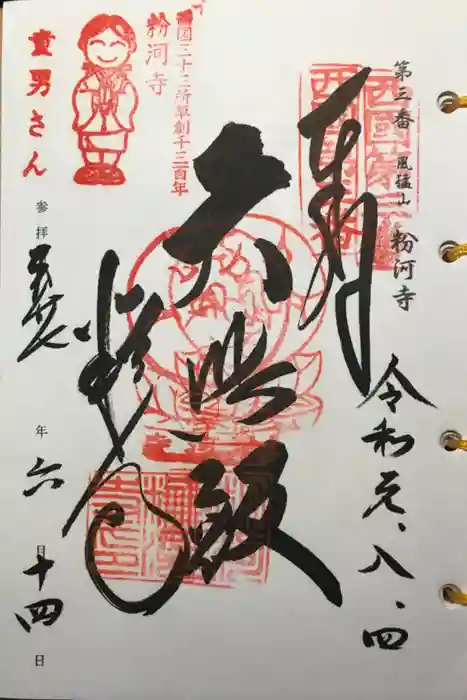 第三番 風猛山 粉河寺
西國第三番
奉拝
令和元、八、四
大悲殿
粉河寺
西国三十三所草創千三百年
粉河寺
童男さん
参拝
年六月十四日